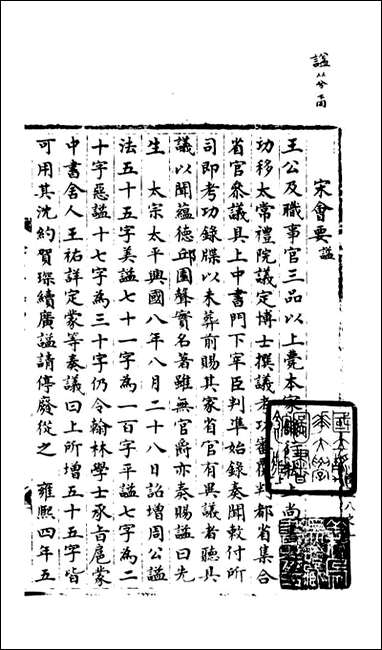 謚
宋會要 謚
王公及職事官三品以上薨本家録行狀上尚書
省考功移太常禮院議定博士撰議考功審覆判都省集合
省官參議具上中書門下宰臣判準始録奏聞敕付所
司即考功錄牒以未葬前賜其家省官有異議者聽具
議以聞蘊德邱園聲實名著雖無官爵亦奏賜謚曰先
生 太宗太平興國八年八月二十八日詔增周公謚
法五十五字美謚七十一字為一百字平謚七字為二
十字惡謚十七字為三十字仍令翰林學士承旨扈蒙
中書舍人王祐詳定蒙等奏議曰上所增五十五字皆
可用其沈約賀琛續廣謚請停廢從之 雍熙四年五